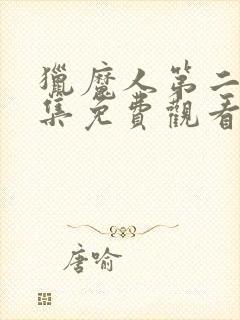 獵魔人第二
集免費觀看
唐喻